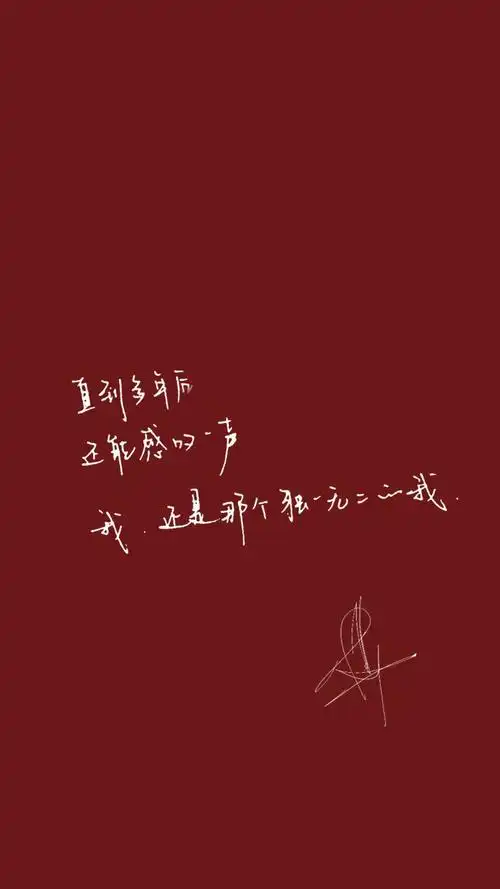 直到多年后
还能感叹一声
我.还是那个独一无二的我.